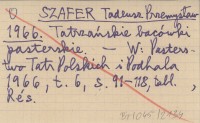 SZAFER Tadeusz Przemysław
1966. Tatrzańskie bacówki
pasterskie. — W: Paster-
stwo Tatr Polskich i Podhala
1966, t. 6, s. 91-118, tabl.,
Rés.